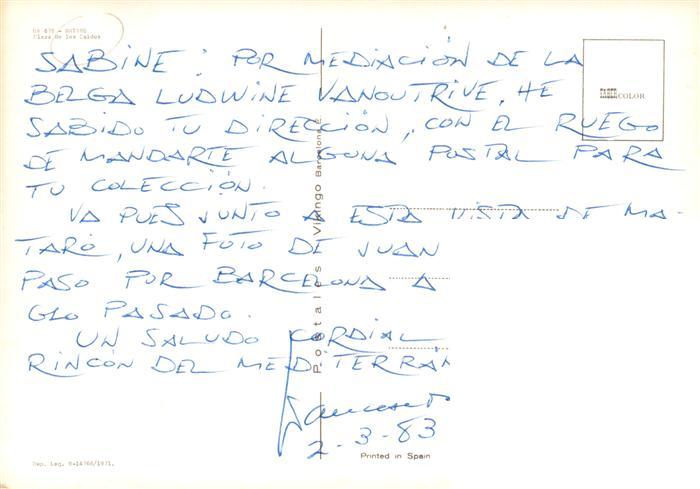 Plaza de los Caidos
SABINE: POR MEDIACIÓN DE LA
BELGA LUDWINE VANOUTRIVE, HE
SABIDO TU DIRECCIÓN, CON EL RUEGO
DE MANDARTE ALGUNA POSTAL PARA
TU COLECCIÓN.
VA PUES JUNTO A ESTA VISTA DE MA-
TARÓ, UNA FOTO DE JUAN
PASO POR BARCELONA A
GLO PASADO.
UN SALUDO CORDIAL
RINCÓN DEL MEDITERRÁN
2-3-83
Postales Vikingo Barcelona
COLOR
Printed in Spain
Dep. Leg. B-14766/1971.